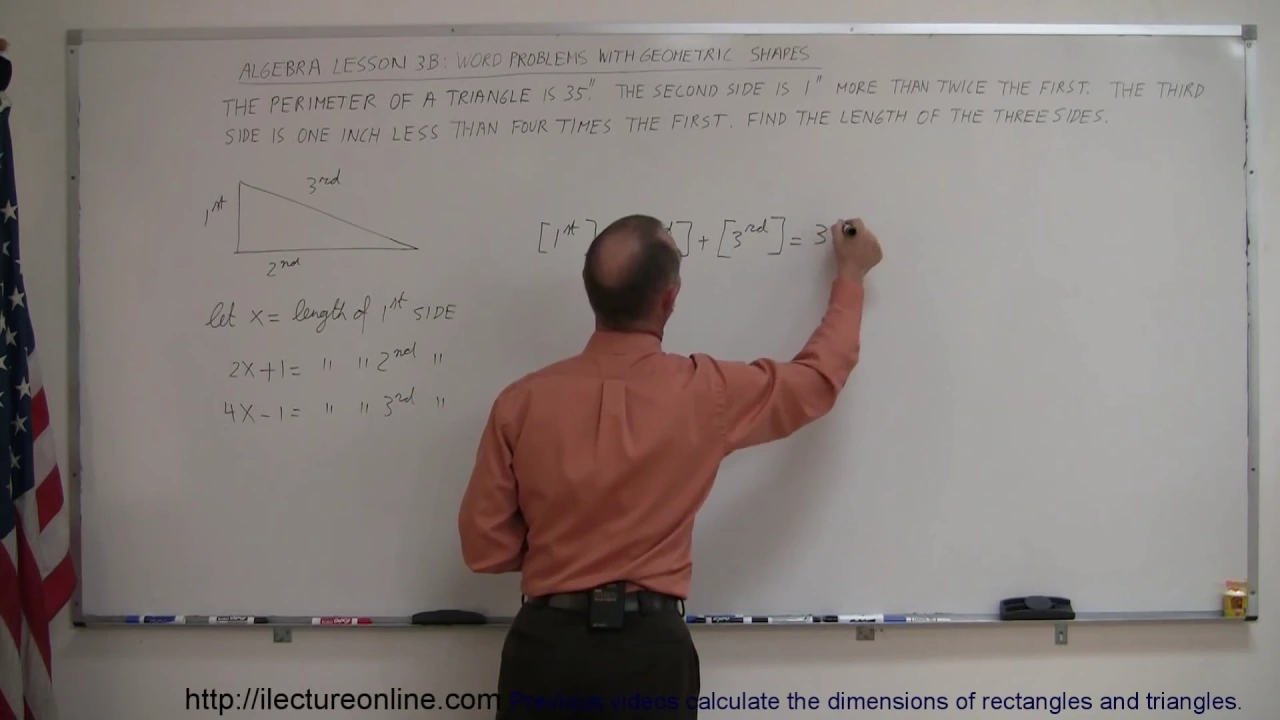 ALGEBRA LESSON 3B: WORD PROBLEMS WITH GEOMETRIC SHAPES
THE PERIMETER OF A TRIANGLE IS 35". THE SECOND SIDE IS 1" MORE THAN TWICE THE FIRST. THE THIRD
SIDE IS ONE INCH LESS THAN FOUR TIMES THE FIRST. FIND THE LENGTH OF THE THREE SIDES.
3rd
1st
2nd
[1st] ] + [3rd] = 3
let X = length of 1st SIDE
2X+1 = " " 2nd "
4X-1 = " " 3rd "
http://ilectureonline.com Previous videos calculate the dimensions of rectangles and triangles.